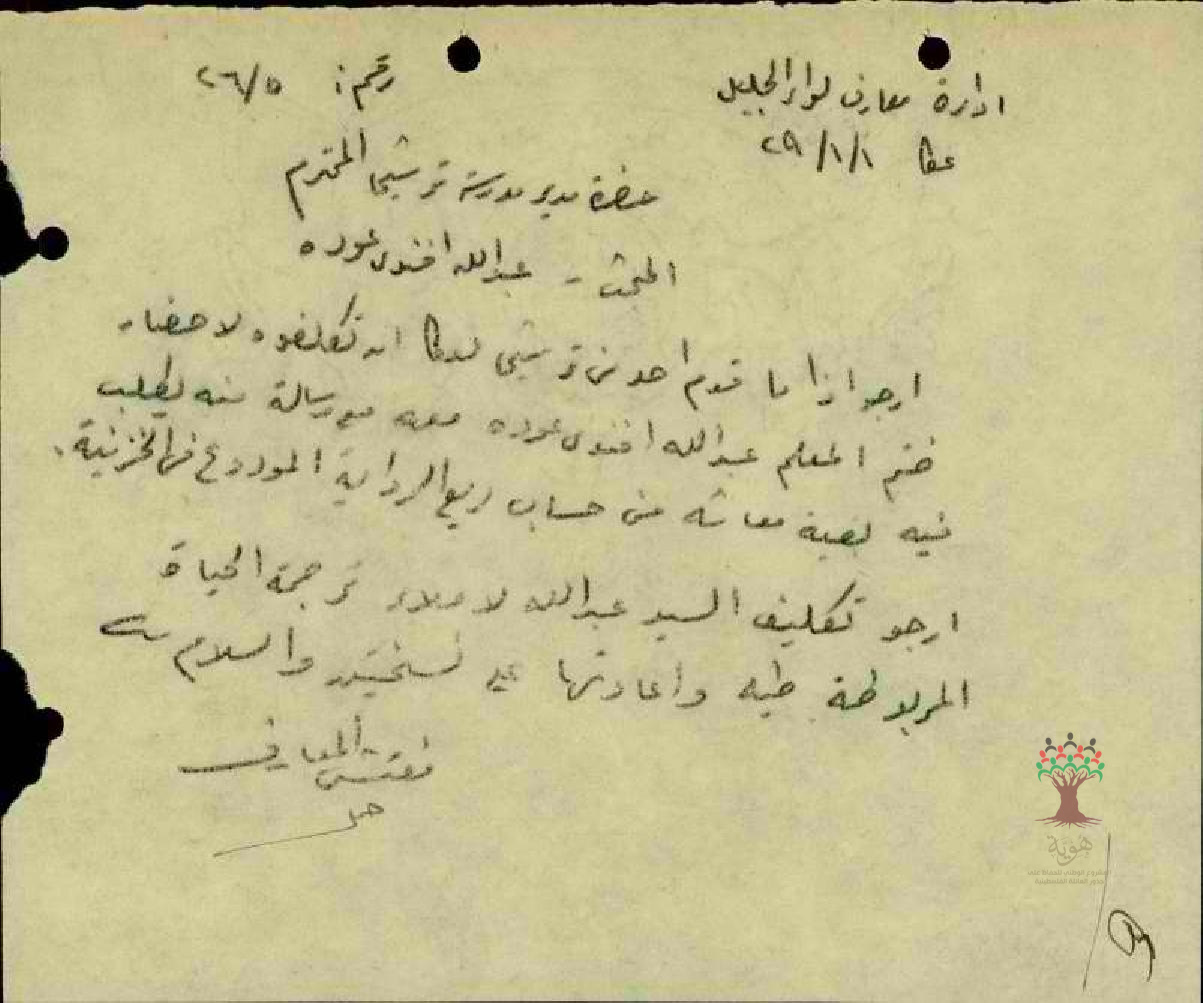 ادارة معارف لواء الجليل
رقم: ٢٦/٥
عكا ٢٩/١/١
حضرة مدير مدرسة ترشيحا المحترم
المبحث - عبدالله افندي عوده
ارجو اذا ما قدم احد من ترشيحا لعكا ان تكلفوه لاحضار
ختم المعلم عبدالله افندي عوده معه مع رسالة منه يطلب
فيه بقية معاشه من حساب الوديعة المودوع في الخزينة.
ارجو تكليف السيد عبدالله لاملاء ترجمة الحياة
المربوطة طيه واعادتها على نسختين والسلام
مفتش المعارف
هوية